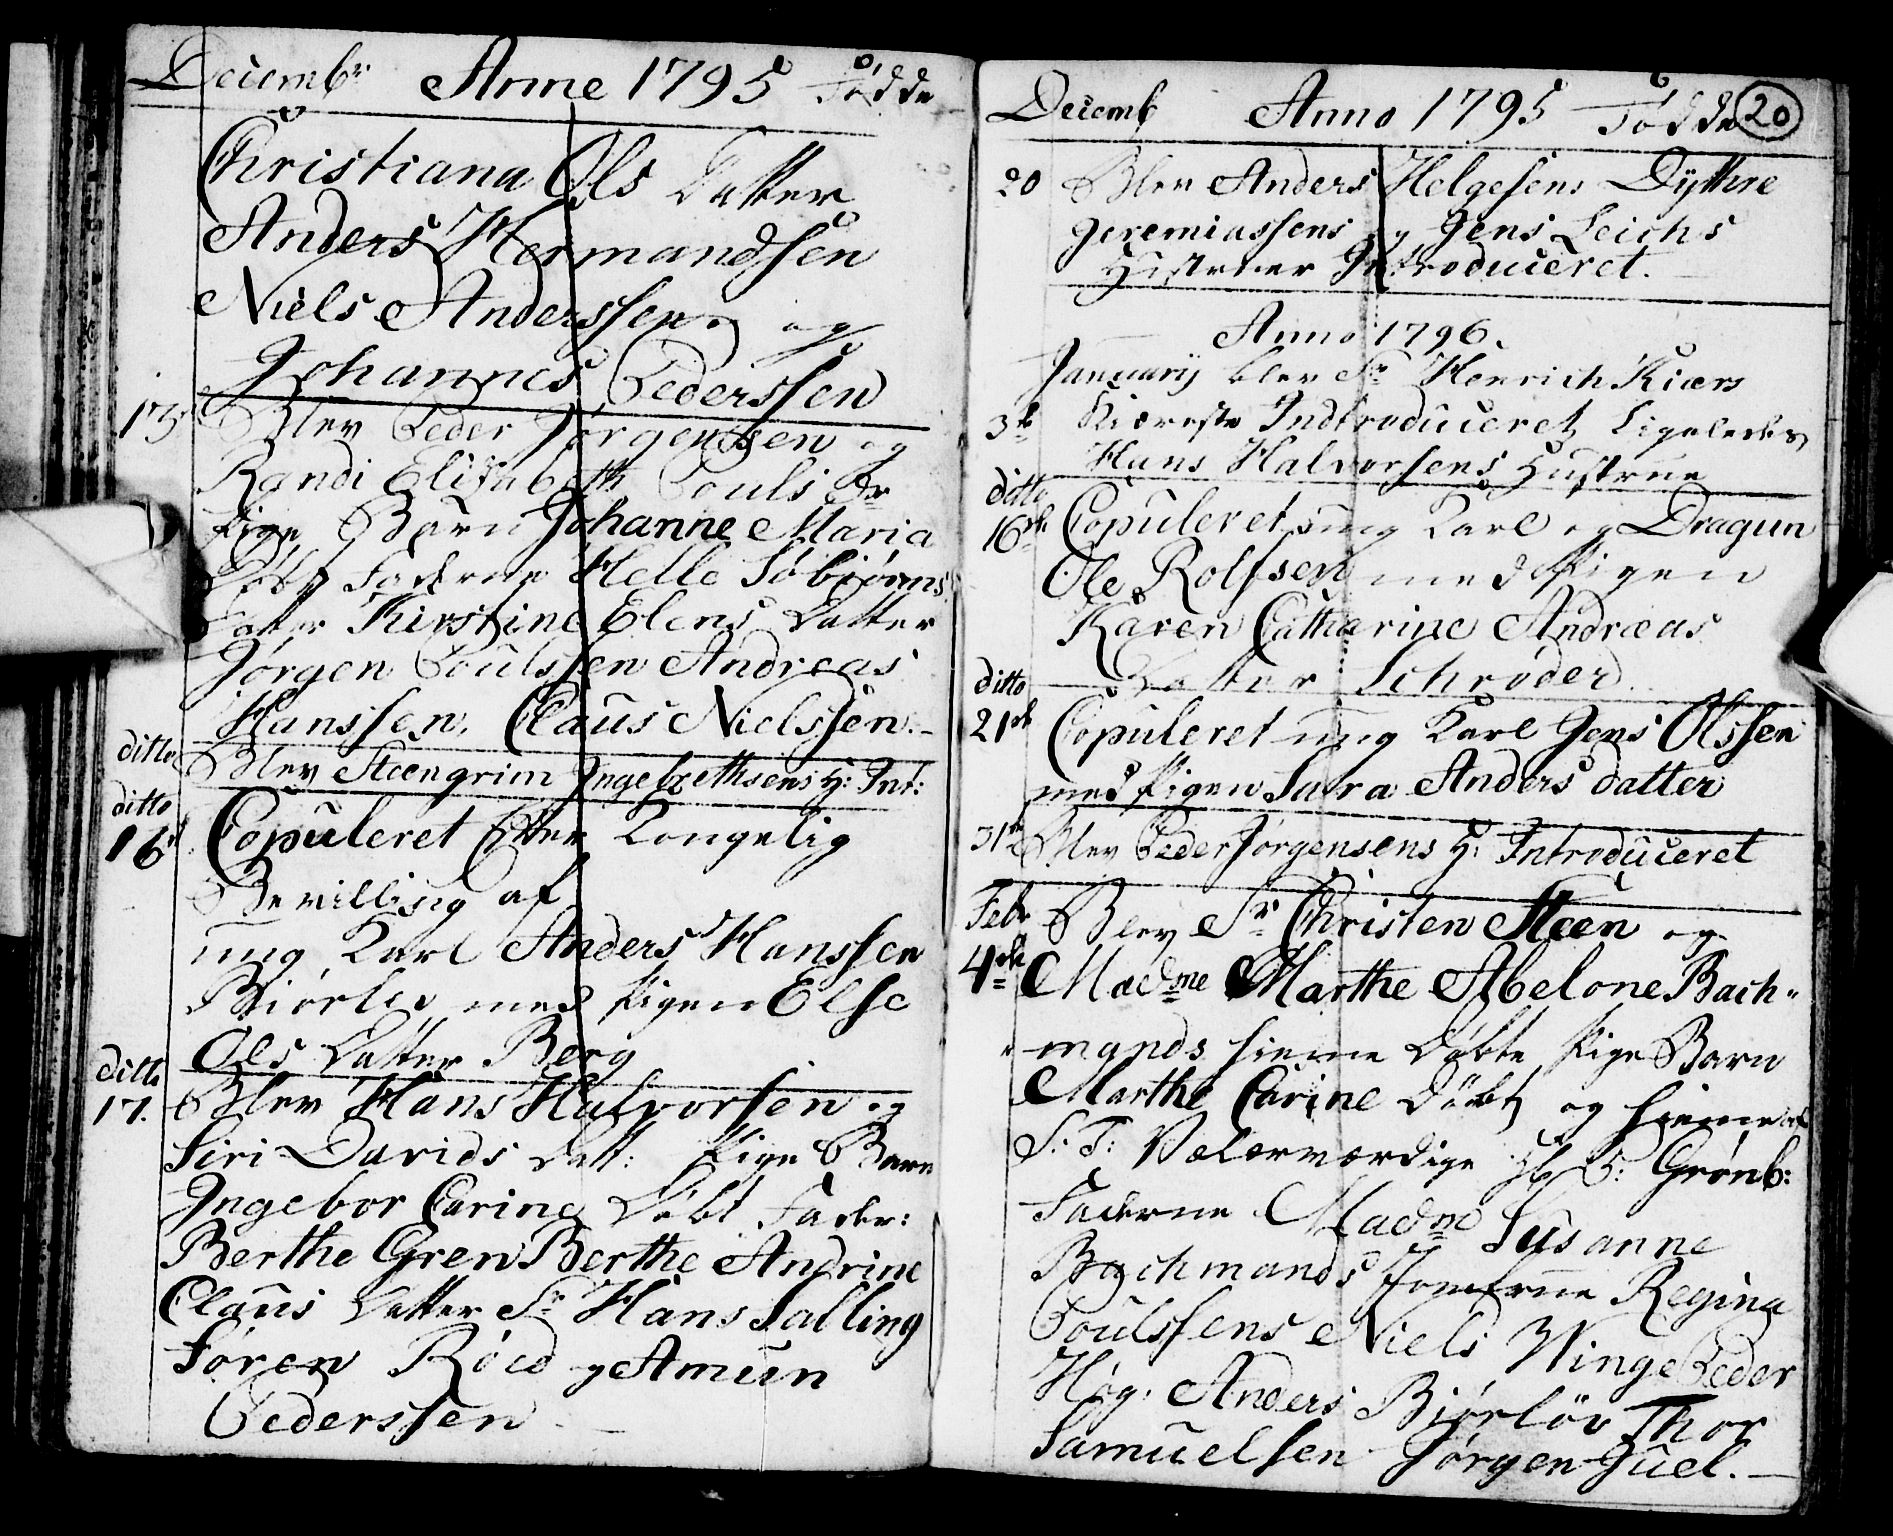 Decembr Anno 1795 Fødde
Christiana Ols Datter
Anders Hermandsen
Niels Anderssen og
Johannes Pederssen
13 Blev Peder Jørgenssen og
Randi Elisabeth Pouls Dr
Pige Barn Johanne Maria
Døbt Faderne Helle Søbiørns
Datter Kirstine Elens Datter
Jørgen Poulssen Andreas
Hanssen, Claus Nielssen.
ditto Blev Steengrim Ingebrethsens H: Int:
ditto
16 Copuleret Efter Kongelig
Bevilling af
ung Karl Anders Hanssen
Biørlev med Pigen Else
Ols Datter Berg
ditto
17. Blev Hans Halvorsen og
Siri Davids Datt: Pige Barn
Ingebor Carine Døbt Fader:
Berthe Gren Berthe Andrine
Claus Datter Sr Hans Salling
Søren Røed og Amun
Pederssen
Decemb Anno 1795 Fødde 20
20 Blev Anders Helgesens Dythre
Jeremiassens og Jens Leichs
Hustruer Introduceret.
Anno 1796.
Januarij blev Sr Henrich Kiærs
3de Kiæreste Indtroduceret Ligeledes
Hans Halvorsens Hustrue
ditto
16de Copuleret ung Karl og Dragun
Ole Rolfsen med Pigen
Karen Catharine Andreas
Datter Schrøder
ditto
21de Copuleret ung Karl Jens Olssen
med Pigen Sara Anders datter
31te Blev Peder Jørgensens H: Introduceret
Febr Blev Sr Christen Steen og
4de Madme Marthe Abelone Bach-
mands hieme Døbte Pige Barn
Marthe Carine Døbt og hieme af
S: T: Velærværdige Hr P: Grønb:
Faderne Madme Susanne
Bachmands Jomfrue Regina
Poulssens Niels Winge Peder
Høg: Anders Biørløv Thor
Samuelsen Jørgen Juel.